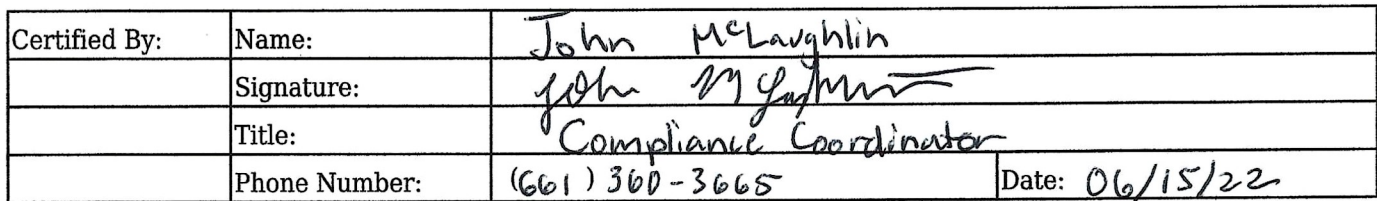 Certified By: Name: John McLaughlin
Signature: John McLaughlin
Title: Compliance Coordinator
Phone Number: (661) 360-3665 Date: 06/15/22